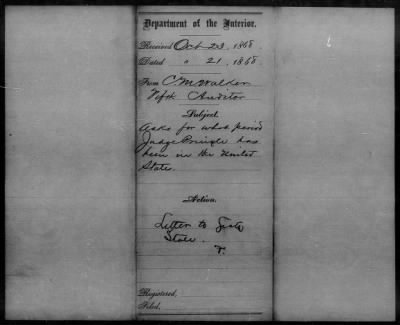 Department of the Interior.
Received Oct 23, 1868.
Dated " 21, 1868
From C M Walker
Fifth Auditor
Subject.
Asks for what period
Judge has
been in the United
States.
Action.
Letter to
State.
Registered,
Filed,